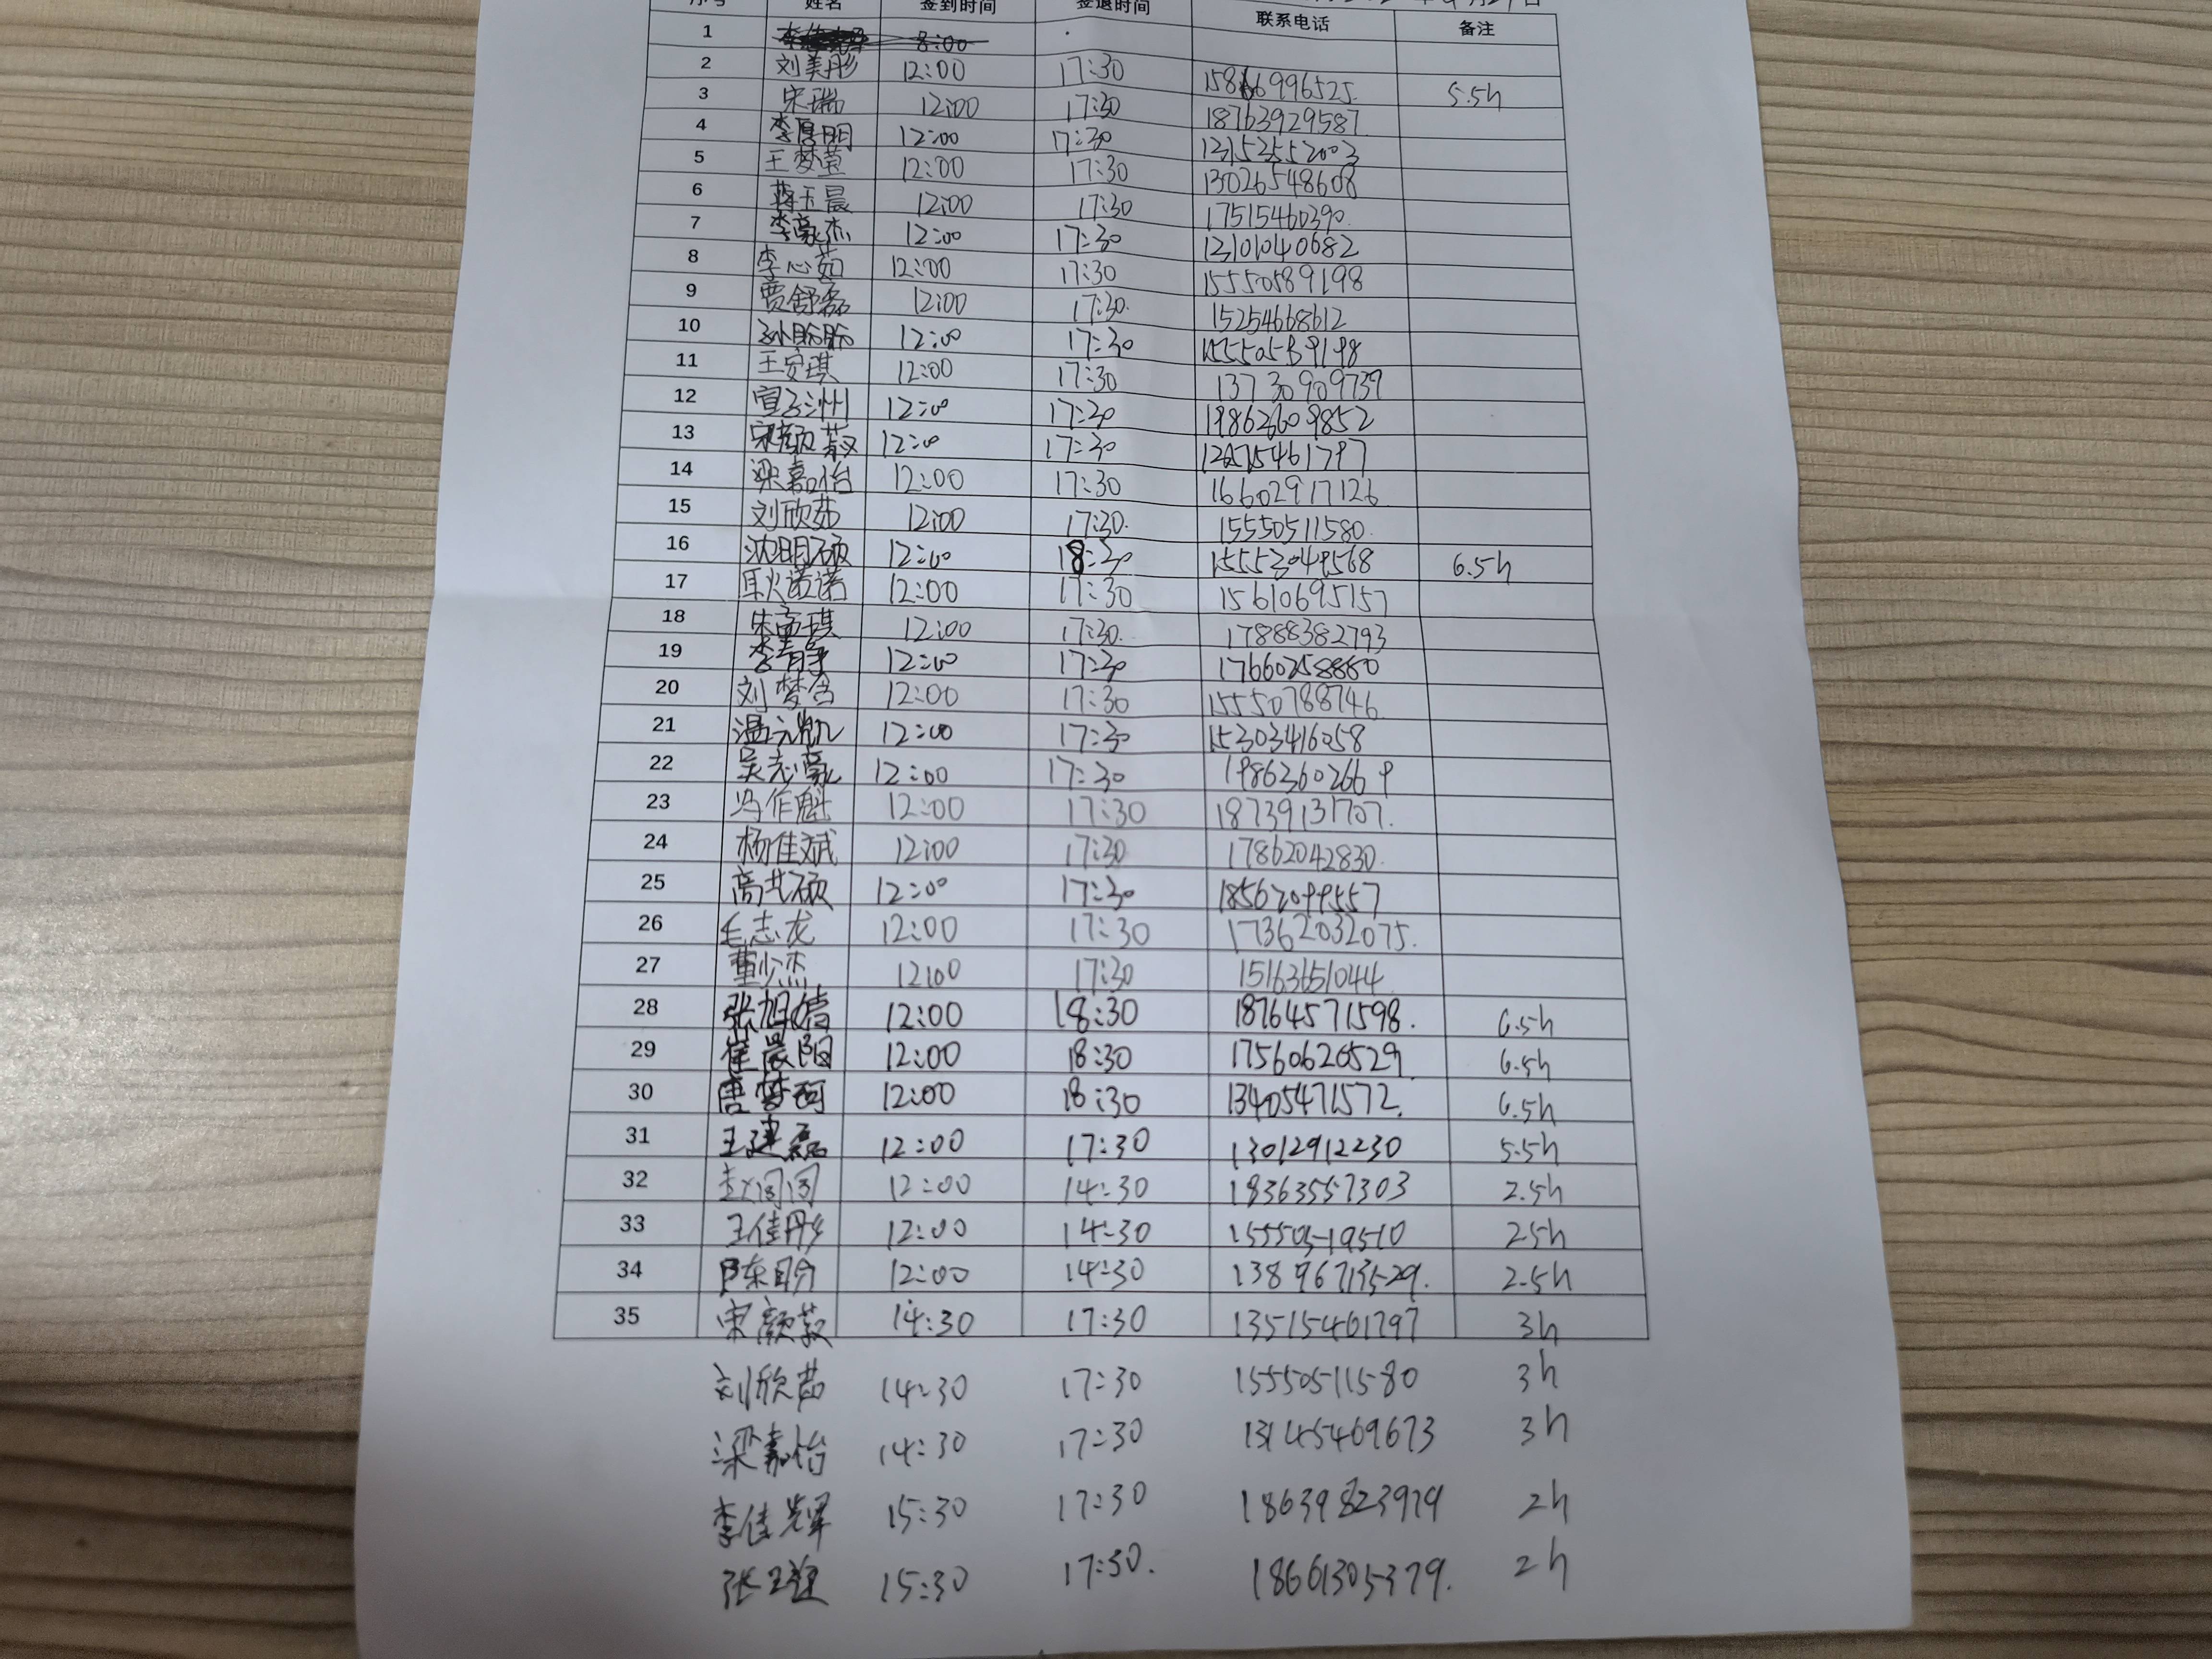 序号 姓名 签到时间 签退时间 联系电话 备注
1 8:00
2 刘美彤 12:00 17:30 15866996525 5.5h
3 宋瑞 12:00 17:30 18763929587
4 李厚明 12:00 17:30
5 王梦莹 12:00 17:30 13026548608
6 蒋玉晨 12:00 17:30 17515460390
7 李豪杰 12:00 17:30
8 李心茹 12:00 17:30 15550589198
9 贾舒磊 12:00 17:30 15254668612
10 孙盼盼 12:00 17:30
11 王安琪 12:00 17:30 13730909739
12 12:00 17:30 19862609852
13 宋颜菽 12:00 17:30
14 梁嘉怡 12:00 17:30 16602917126
15 刘欣茹 12:00 17:30 15550511580
16 沈明硕 12:00 18:30 6.5h
17 耿诺诺 12:00 17:30 15610695157
18 朱孟琪 12:00 17:30 17888382793
19 12:00 17:30 17660258880
20 刘梦含 12:00 17:30 15550788746
21 温元凯 12:00 17:30 15303416058
22 吴志豪 12:00 17:30 19862602669
23 冯作魁 12:00 17:30 18739131707
24 杨佳斌 12:00 17:30 17862042830
25 高艺硕 12:00 17:30 18562099557
26 毛志龙 12:00 17:30 17362032075
27 董少杰 12:00 17:30 15163651044
28 张旭倩 12:00 18:30 18764571598 6.5h
29 崔晨阳 12:00 18:30 17560626529 6.5h
30 唐梦珂 12:00 18:30 13405471572 6.5h
31 王建磊 12:00 17:30 13012912230 5.5h
32 赵闫闫 12:00 14:30 18363557303 2.5h
33 王佳彤 12:00 14:30 15550519510 2.5h
34 陈盼 12:00 14:30 13896713529 2.5h
35 宋颜菽 14:30 17:30 13515461797 3h
刘欣茹 14:30 17:30 15550511580 3h
梁嘉怡 14:30 17:30 13145469673 3h
李佳辉 15:30 17:30 18639823979 2h
15:30 17:30 18661305379 2h